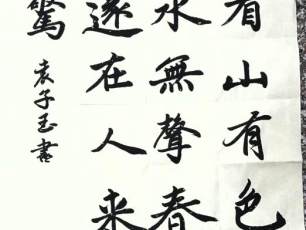 看山有色
水無聲春
還在人来
驚
袁子玉書